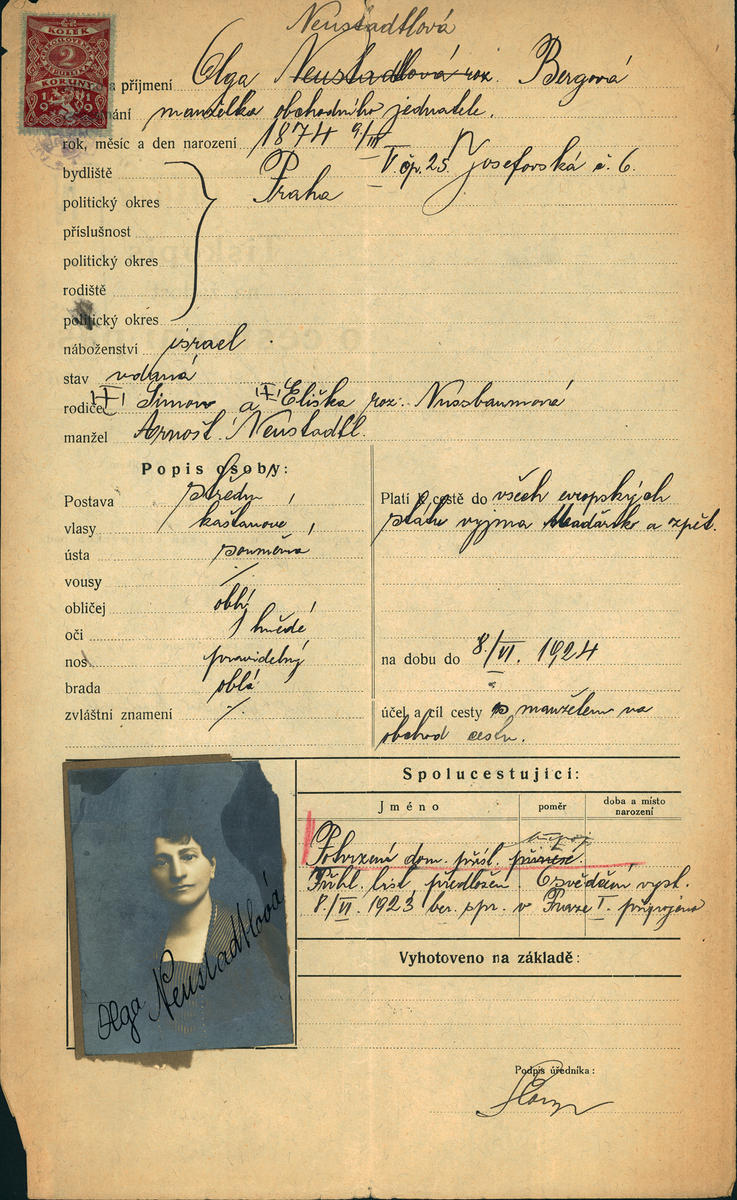 Neustadtlová
KOLEK
2
KORUNY
1919
a příjmení Olga Neustadtlová roz. Bergová
ání manželka obchodního jednatele.
rok, měsíc a den narození 1874 9/III
bydliště Praha V. čp. 25 Josefovská č. 6.
politický okres
příslušnost
politický okres
rodiště
politický okres
náboženství israel.
stav vdaná
rodiče Simon a Eliška roz. Nussbaumová
manžel Arnošt Neustadtl.
Popis osoby:
Postava střední
vlasy kaštanové
ústa souměrná
vousy ./.
obličej oblý
oči hnědé
nos pravidelný
brada oblá
zvláštní znamení ./.
Platí k cestě do všech evropských
států vyjma Maďarsko a zpět.
na dobu do 8./VI. 1924
účel a cíl cesty s manželem na
obchod cestu.
Spolucestující:
Jméno poměr doba a místo narození
Potvrzení dom. přísl.
Průhl. list předložen Osvědčení vyst.
8./VI. 1923 ber. spr. v Praze I. připojeno
Vyhotoveno na základě:
Olga Neustadtlová
Podpis úředníka: